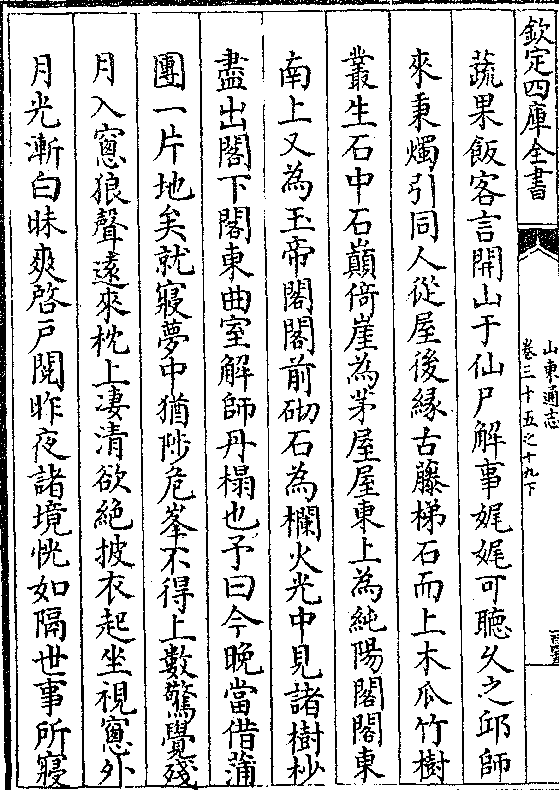 欽定四庫全書
山東通志
卷三十五之十九下
蔬果飯客言開山于仙尸解事娓娓可聽久之邱師
來秉燭引同人從屋後緣古藤梯石而上木瓜竹樹
叢生石中石巔倚崖為茅屋屋東上為純陽閣閣東
南上又為玉帝閣閣前砌石為欄火光中見諸樹杪
盡出閣下閣東曲室解師丹榻也予曰今晚當借蒲
團一片地矣就寢夢中猶陟危峯不得上數驚覺殘
月入窻狼聲遠來枕上凄清欲絶披衣起坐視窻外
月光漸白昧爽啓戶閲昨夜諸境恍如隔世事所寢